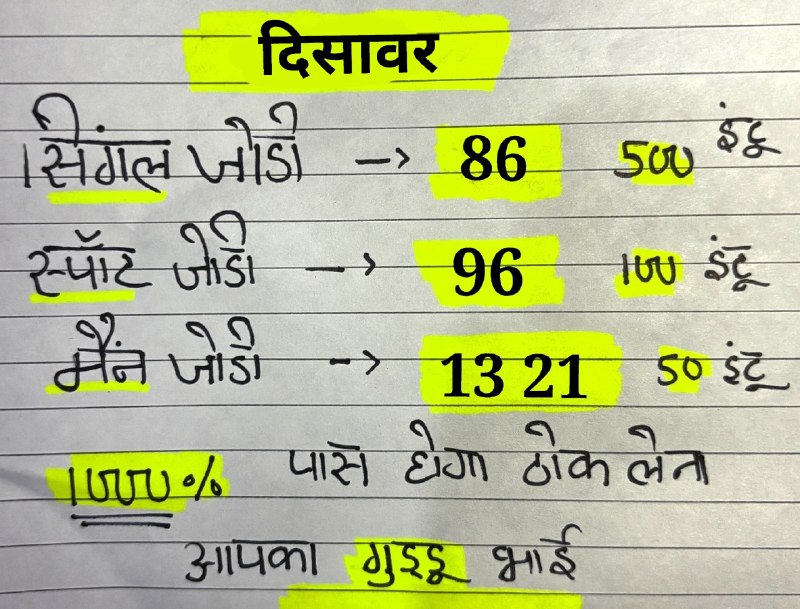 दिसावर
सिंगल जोडी -> 86 500 इंटू
स्पॉट जोडी -> 96 100 इंटू
मैंन जोडी -> 13 21 50 इंटू
1000% पास होगा ठोक लेना
आपका गुड्डू भाई